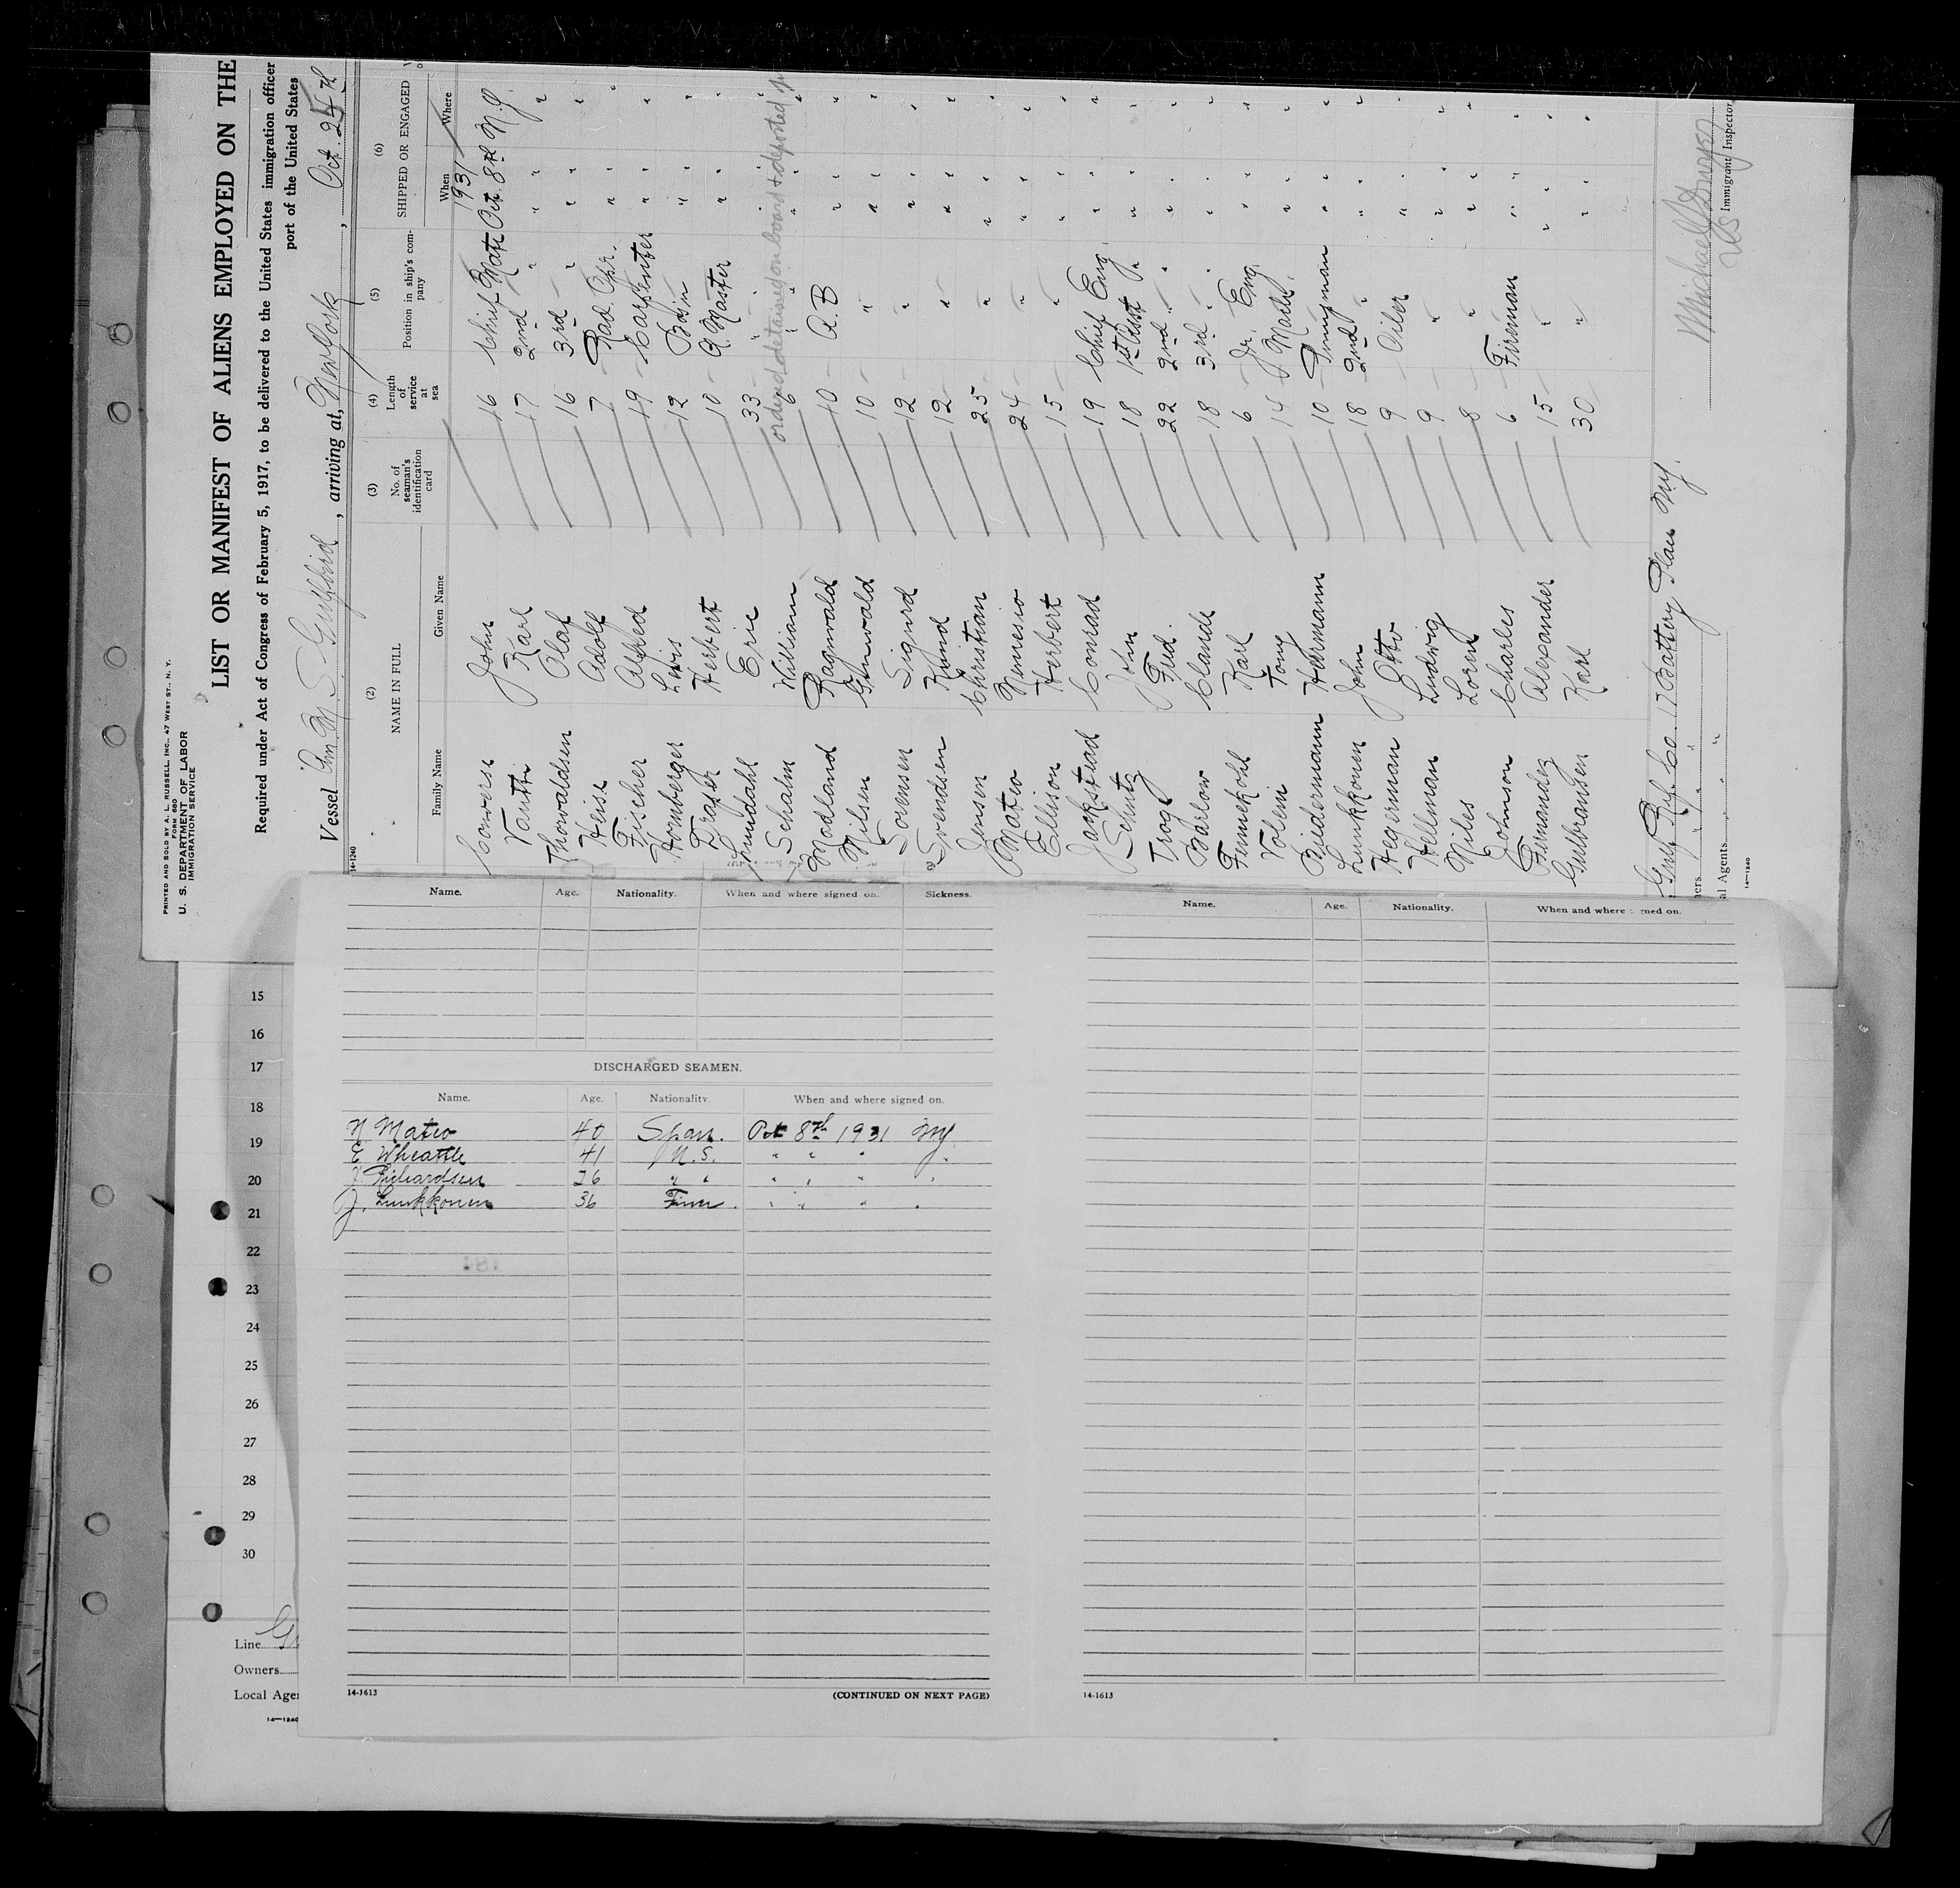 PRINTED AND SOLD BY A. L. RUSSELL, INC., 47 WEST ST., N. Y.
FORM 680
U. S. DEPARTMENT OF LABOR
IMMIGRATION SERVICE
LIST OR MANIFEST OF ALIENS EMPLOYED ON THE
Required under Act of Congress of February 5, 1917, to be delivered to the United States immigration officer
port of the United States
Vessel Am M S Gulfbird, arriving at, New York, Oct. 25th
14-1240
(2) (3) (4) (5) (6)
NAME IN FULL No. of seaman's identification card Length of service at sea Position in ship's company SHIPPED OR ENGAGED
Family Name Given Name When Where
1931
Converse John 16 Chief Mate Oct. 8th N.Y.
Vanti Karl 17 2nd " " " "
Thorwaldsen Olaf 16 3rd " " " "
Heise Adolf 7 Rad. Opr. " " "
Fischer Alfred 19 Carpenter " " "
Hornberger Lewis 12 Bosin " " "
Draper Herbert 10 Q. Master " " "
Lundahl Eric 33 " " " "
Schalm William 6 " " " "
ordered detained on board & deported
Madland Ragnvald 10 A. B " " "
Nilsen Gunwald 10 " " " "
Sorensen Sigurd 12 " " " "
Svendsen Knud 12 " " " "
Jensen Christian 25 " " " "
Mateo Nemesio 24 " " " "
Ellison Herbert 15 " " " "
Jackstad Conrad 19 Chief Eng. " " "
Schutz John 18 1st Asst " " " "
Trog Fred. 22 2nd " " " " "
Barlow Claude 18 3rd " " " " "
Finnekohl Karl 6 Jr. Eng. " " "
Volein Tony 14 " " "
Biedermann Hermann 10 Pumpman " " "
Lunkkonen John 18 2nd " " " "
Hegerman Otto 9 Oiler " " "
Hellman Ludwig 9 " " " "
Niles Loren 8 " " " "
Johnson Charles 6 Fireman " " "
Fernandez Alexander 15 " " " "
Gulbransen Karl 30 " " " "
Gulf Ref. Co. 17 Battery Place N.Y.
ners " " " "
al Agents " " "
14-1240
Immigrant Inspector
Name. Age. Nationality. When and where signed on. Sickness.
DISCHARGED SEAMEN.
Name. Age. Nationality. When and where signed on.
N Mateo 40 Span. Oct 8th 1931 N.Y.
E Wheattle 41 U.S. " " " "
Richardsen 26 " " " " " "
J. Lunkkonen 36 Finn. " " " "
14-1613
(CONTINUED ON NEXT PAGE)
Name. Age. Nationality. When and where
14-1613
15
16
17
18
19
20
21
22
23
24
25
26
27
28
29
30
Line
Owners
Local Age
14-1240